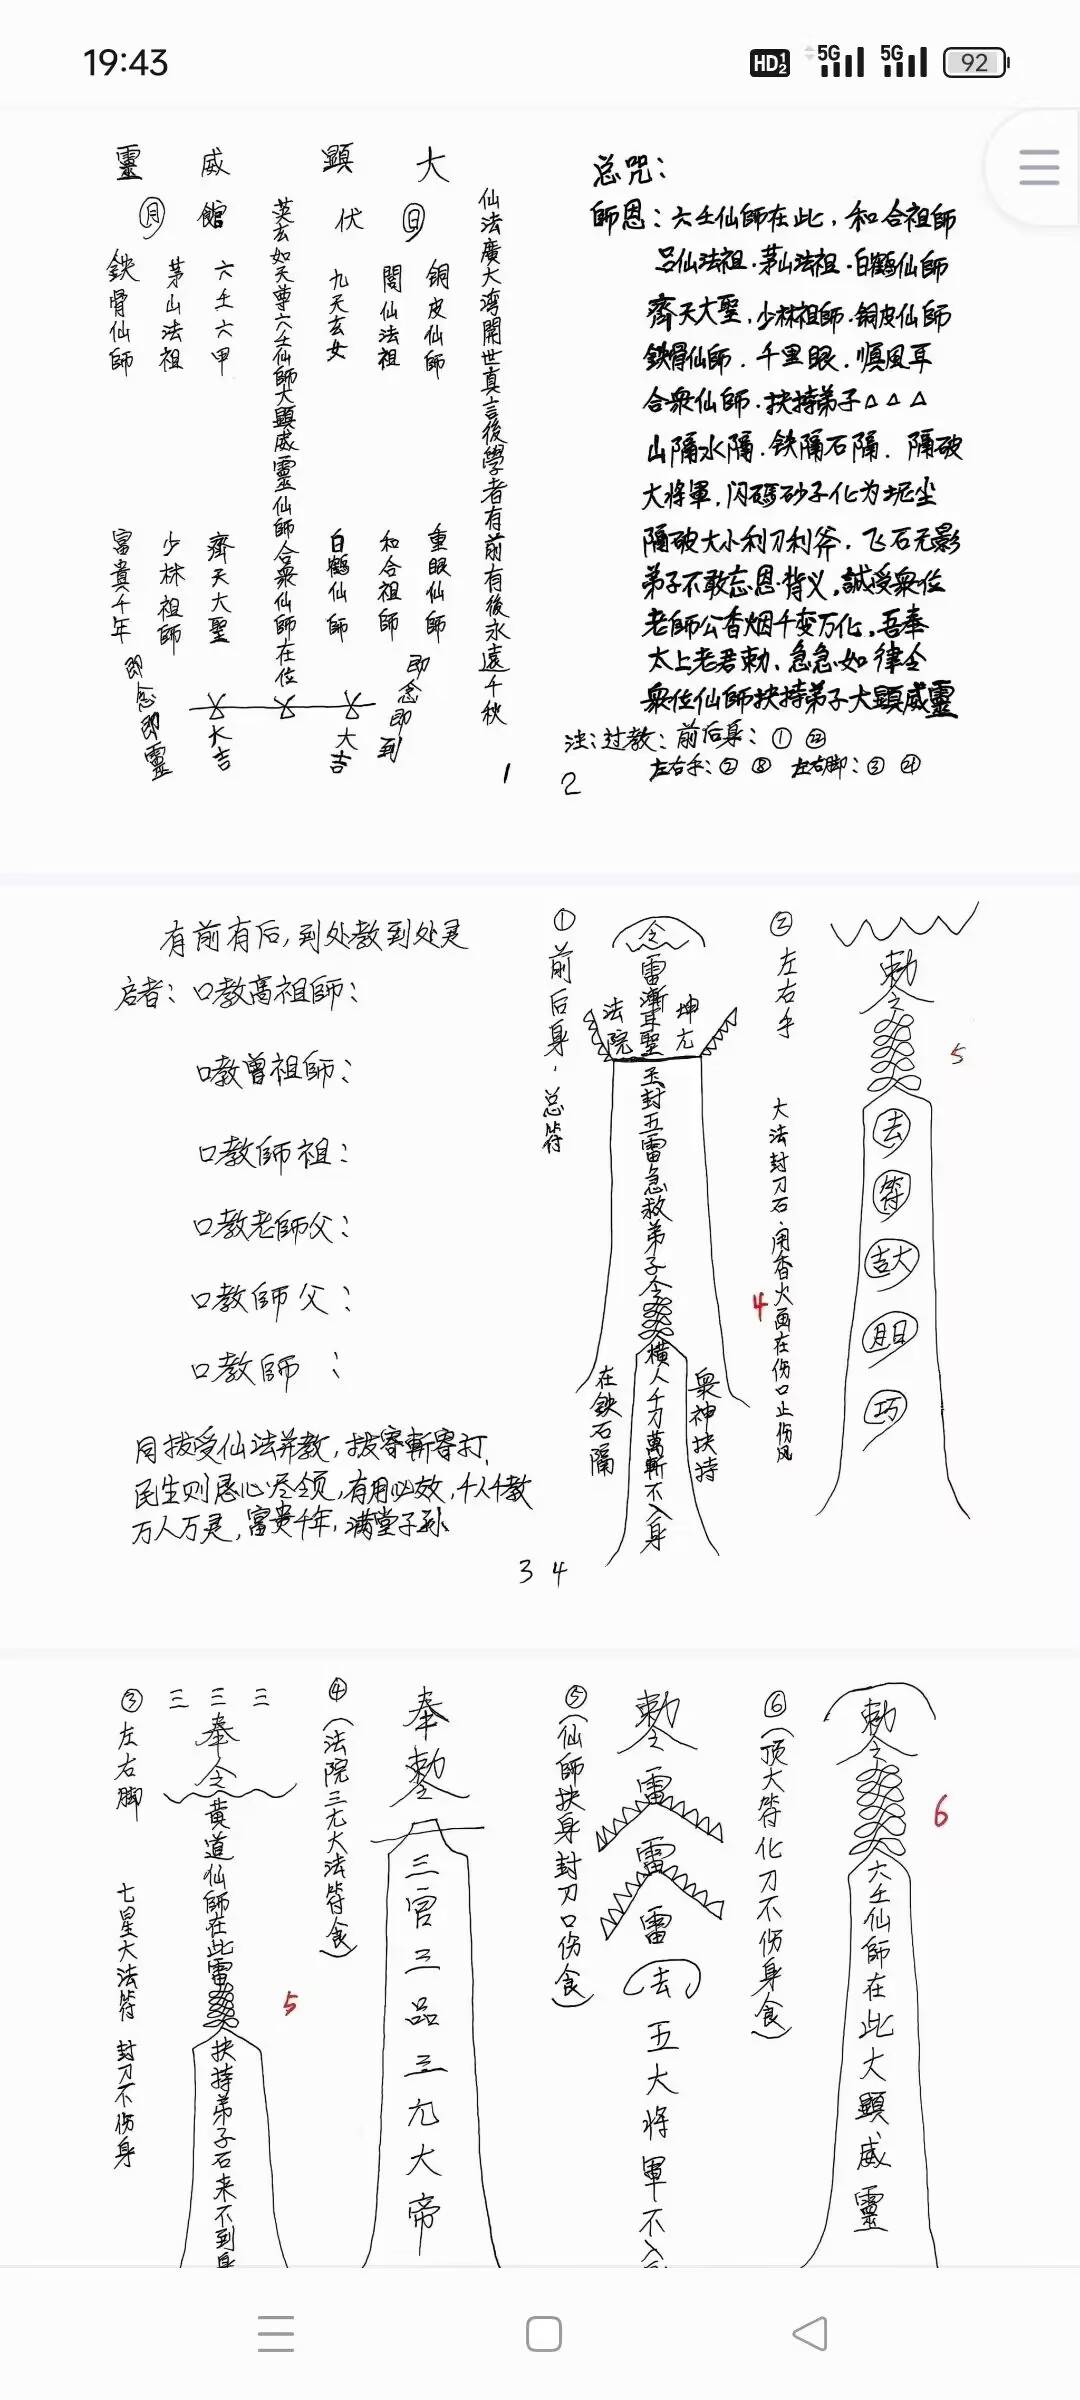 19:43
HD 1 2 5G 5G 92
大顯威靈
日 伏 館 月
仙法廣大湾開世真言後學者有前有後永遠千秋
銅皮仙師 重眼仙師
閭仙法祖 和合祖師
即念即到
九天玄女 白鶴仙師
大吉
英玄如天尊六壬仙師大顯威靈仙師合衆仙師在位
六壬六甲 齊天大聖
大吉
茅山法祖 少林祖師
鉄骨仙師 富貴千年
即念即靈
1
总咒：
師恩：六壬仙師在此，和合祖師
吕仙法祖.茅山法祖.白鶴仙師
齊天大聖.少林祖師.銅皮仙師
鉄骨仙師.千里眼.順風耳
合衆仙師.扶持弟子△△△
山隔水隔.鉄隔石隔.隔破
大将軍,闪碼砂子化为坭尘
隔破大小利刀利斧.飞石无影
弟子不敢忘恩背义,誠受衆位
老師公香烟千变万化,吾奉
太上老君勅.急急如律令
衆位仙師扶持弟子大顯威靈
注:过教:前后身:① ㉒
左右手:② ⑧ 左右脚:③ ㉔
2
有前有后,到处教到处灵
启者:口教高祖師:
口教曾祖師:
口教師祖:
口教老師父:
口教師父:
口教師:
同拔受仙法并教,
民生则悬心尽领,有用必效,千人千教
万人万灵,富贵千年,满堂子孙
3 4
① 前后身.总符
令
雷漸耳聖
法院
坤元
玉封五雷急救弟子令
横人千刀萬斬不入身
在鉄石隔
衆神扶持
4
② 左右手
大法封刀石.用香火画在伤口止伤风
勅令
去
符
大吉
月日
巧
5
③ 左右脚
七星大法符 封刀不伤身
三 三 三
奉令
黄道仙師在此雷
扶持弟子石来不到身
5
④ (法院三元大法符食)
奉勅令
三官三品三元大帝
⑤ (仙師扶身封刀口伤食)
勅令
雷
雷
雷
去
五大将軍不入身
⑥ (顶大符化刀不伤身食)
勅令
六壬仙師在此大顯威靈
6